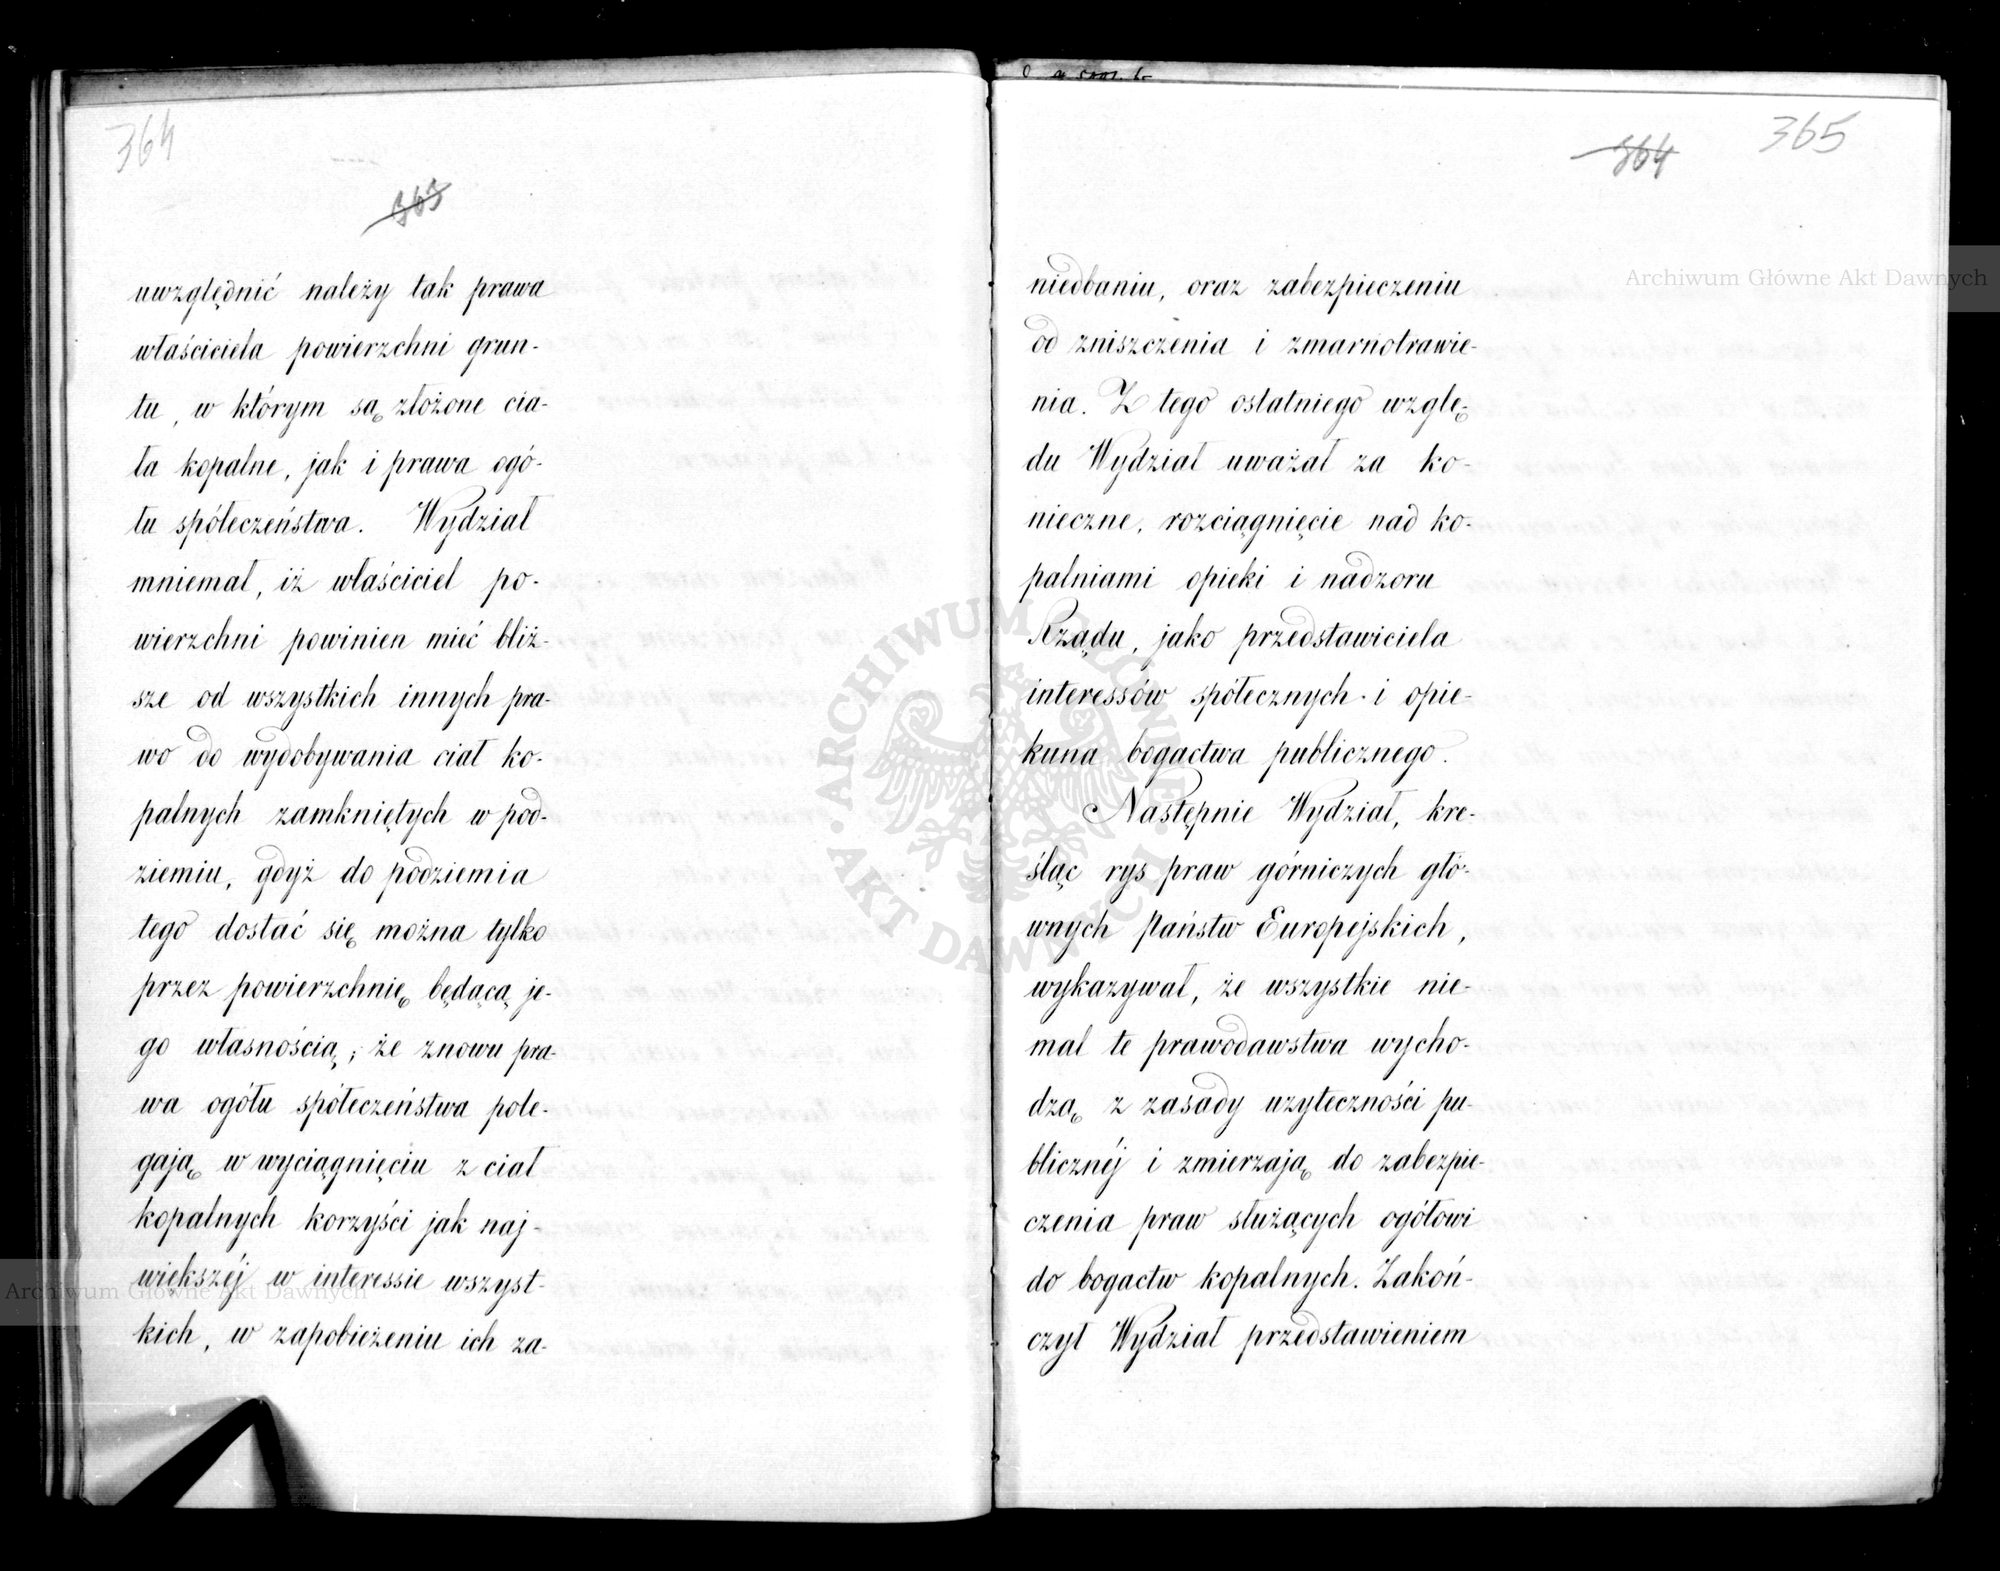 364
363
uwzględnić należy tak prawa
właściciela powierzchni grun-
tu, w którym są złożone cia-
ła kopalne, jak i prawa ogó-
łu spółeczeństwa. Wydział
mniemał, iż właściciel po-
wierzchni powinien mieć bliż-
sze od wszystkich innych pra-
wo do wydobywania ciał ko-
palnych zamkniętych w pod-
ziemiu, gdyż do podziemia
tego dostać się można tylko
przez powierzchnię będącą je-
go własnością; że znowu pra-
wa ogółu spółeczeństwa pole-
gają w wyciągnięciu z ciał
kopalnych korzyści jak naj-
większéj w interessie wszyst-
kich, w zapobieżeniu ich za-
365
364
niedbaniu, oraz zabezpieczeniu
od zniszczenia i zmarnotrawie-
nia. Z tego ostatniego wzglę-
du Wydział uważał za ko-
nieczne, rozciągnięcie nad ko-
palniami opieki i nadzoru
Rządu, jako przedstawiciela
interessów spółecznych i opie-
kuna bogactwa publicznego.
Następnie Wydział, kre-
śląc rys praw górniczych głó-
wnych Państw Europejskich,
wykazywał, że wszystkie nie-
mal te prawodawstwa wycho-
dzą z zasady użyteczności pu-
blicznéj i zmierzają do zabezpie-
czenia praw służących ogółowi
do bogactw kopalnych. Zakoń-
czył Wydział przedstawieniem
Archiwum Główne Akt Dawnych
Archiwum Główne Akt Dawnych
ARCHIWUM GŁÓWNE AKT DAWNYCH